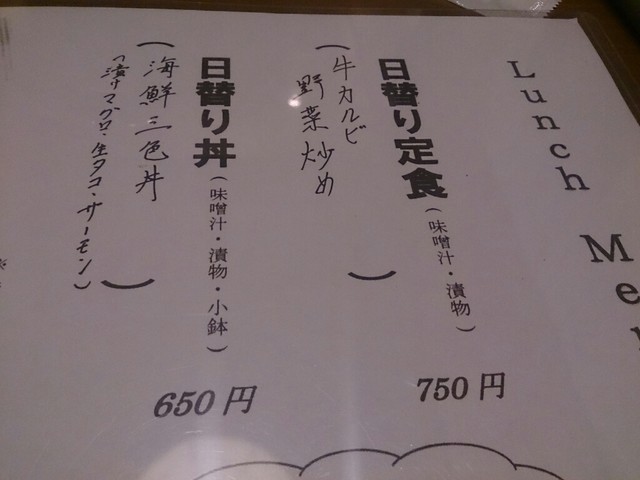 Lunch Me
日替り定食（味噌汁・漬物）
（牛カルビ
野菜炒め）
750円
日替り丼（味噌汁・漬物・小鉢）
（海鮮三色丼
（漬けマグロ・生タコ・サーモン））
650円